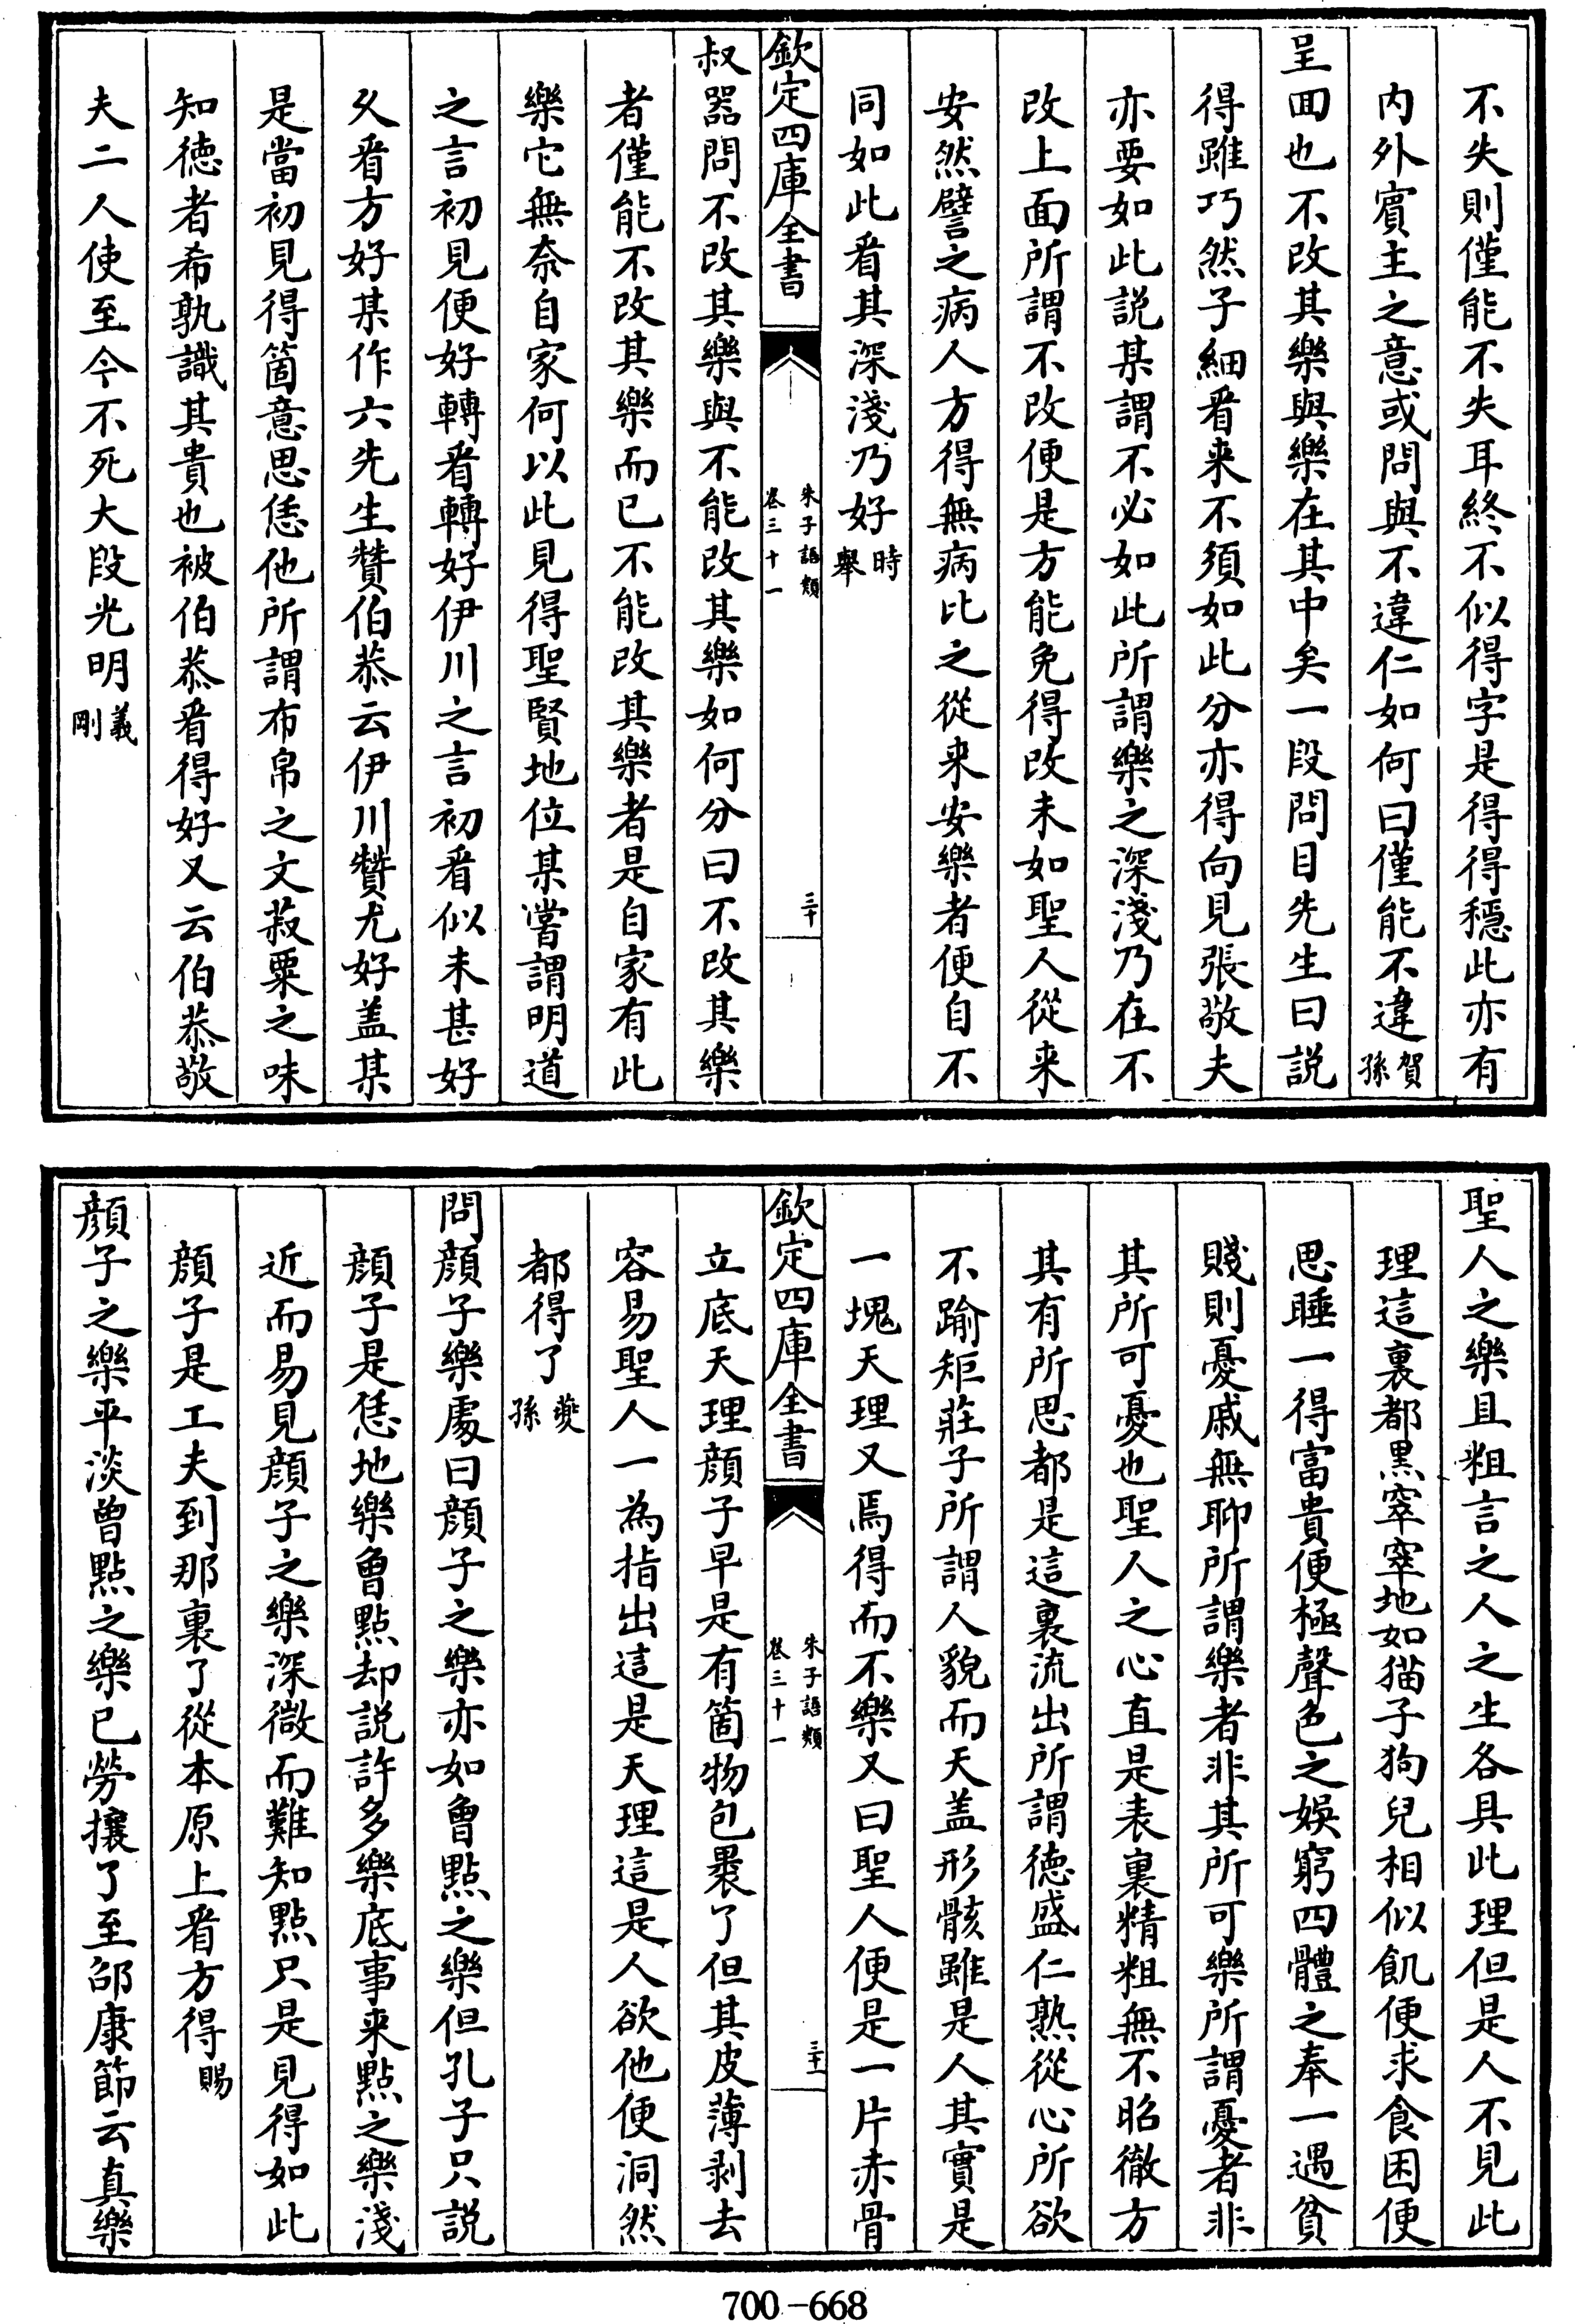 不失則僅能不失耳終不似得字是得得穩此亦有
内外賓主之意或問與不違仁如何曰僅能不違賀孫
呈囬也不改其樂與樂在其中矣一段問目先生曰説
得雖巧然子細㸔来不須如此分亦得向見張敬夫
亦要如此説某謂不必如此所謂樂之深淺乃在不
改上面所謂不改便是方能免得改未如聖人從来
安然譬之病人方得無病比之從来安樂者便自不
同如此㸔其深淺乃好時舉
欽定四庫全書
朱子語類
卷三十一
三十
叔器問不改其樂與不能改其樂如何分曰不改其樂
者僅能不改其樂而已不能改其樂者是自家有此
樂它無奈自家何以此見得聖賢地位某嘗謂明道
之言初見便好轉㸔轉好伊川之言初㸔似未甚好
乆㸔方好某作六先生贊伯恭云伊川贊尤好盖某
是當初見得箇意思恁他所謂布帛之文菽粟之味
知徳者希孰識其貴也被伯恭㸔得好又云伯恭敬
夫二人使至今不死大段光明義剛
聖人之樂且粗言之人之生各具此理但是人不見此
理這裏都黒窣窣地如猫子狗兒相似飢便求食困便
思睡一得富貴便極聲色之娯窮四體之奉一遇貧
賤則憂戚無聊所謂樂者非其所可樂所謂憂者非
其所可憂也聖人之心直是表裏精粗無不昭徹方
其有所思都是這裏流出所謂徳盛仁熟從心所欲
不踰矩莊子所謂人貌而天盖形骸雖是人其實是
一塊天理又焉得而不樂又曰聖人便是一片赤骨
欽定四庫全書
朱子語類
卷三十一
三十一
立底天理顔子早是有箇物包褁了但其皮薄剥去
容易聖人一為指出這是天理這是人欲他便洞然
都得了夔孫
問顔子樂處曰顔子之樂亦如曾點之樂但孔子只説
顔子是恁地樂曾點却説許多樂底事来點之樂淺
近而易見顔子之樂深微而難知點只是見得如此
顔子是工夫到那裏了從本原上㸔方得賜
顔子之樂平淡曾點之樂已勞攘了至邵康節云真樂
700-668